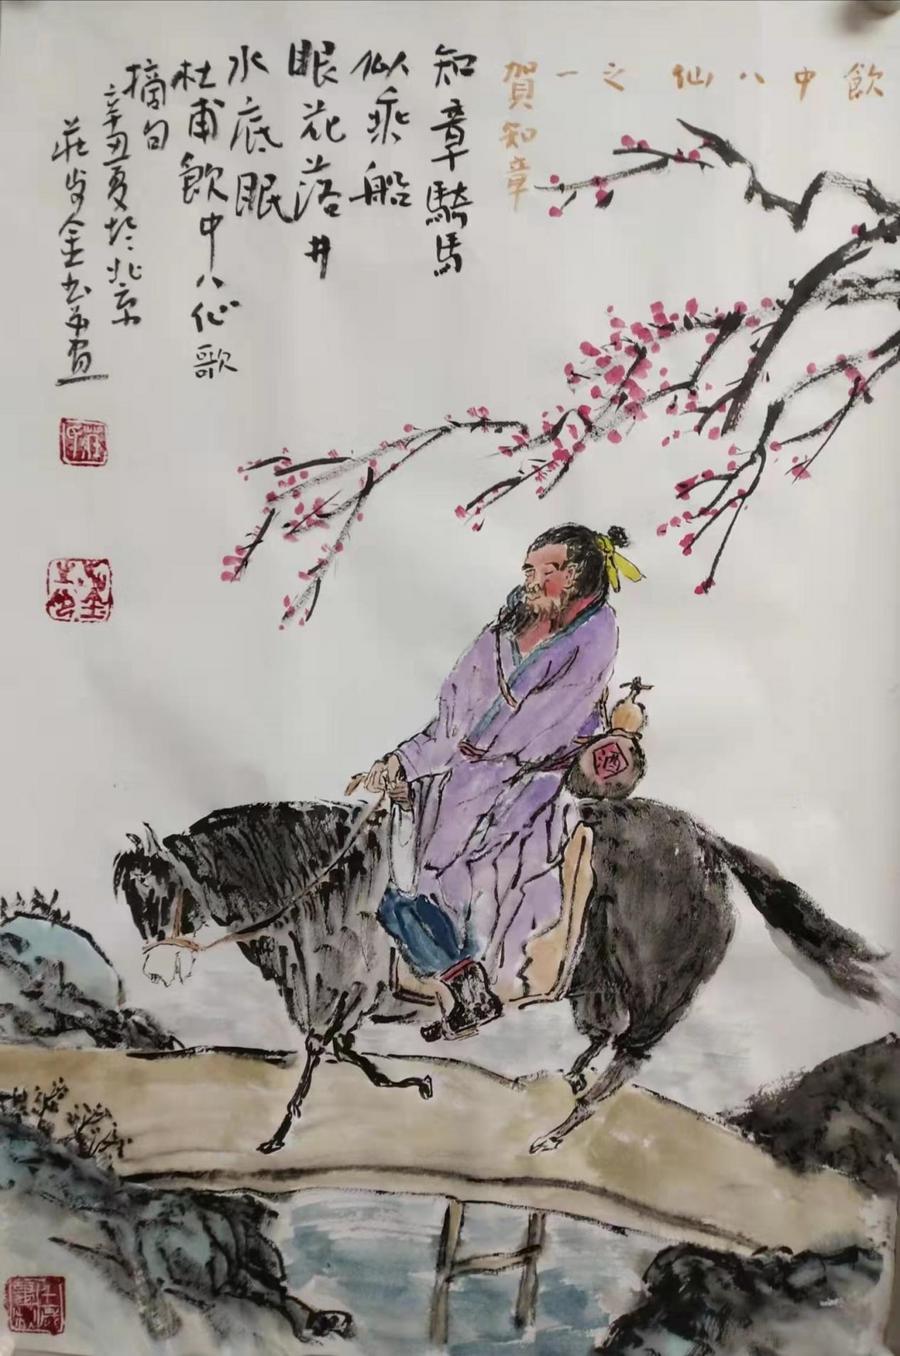 飲中八仙之一
賀知章
知章騎馬
似乘船
眼花落井
水底眠
杜甫飲中八仙歌
摘句
辛丑夏於北京
莊
酒